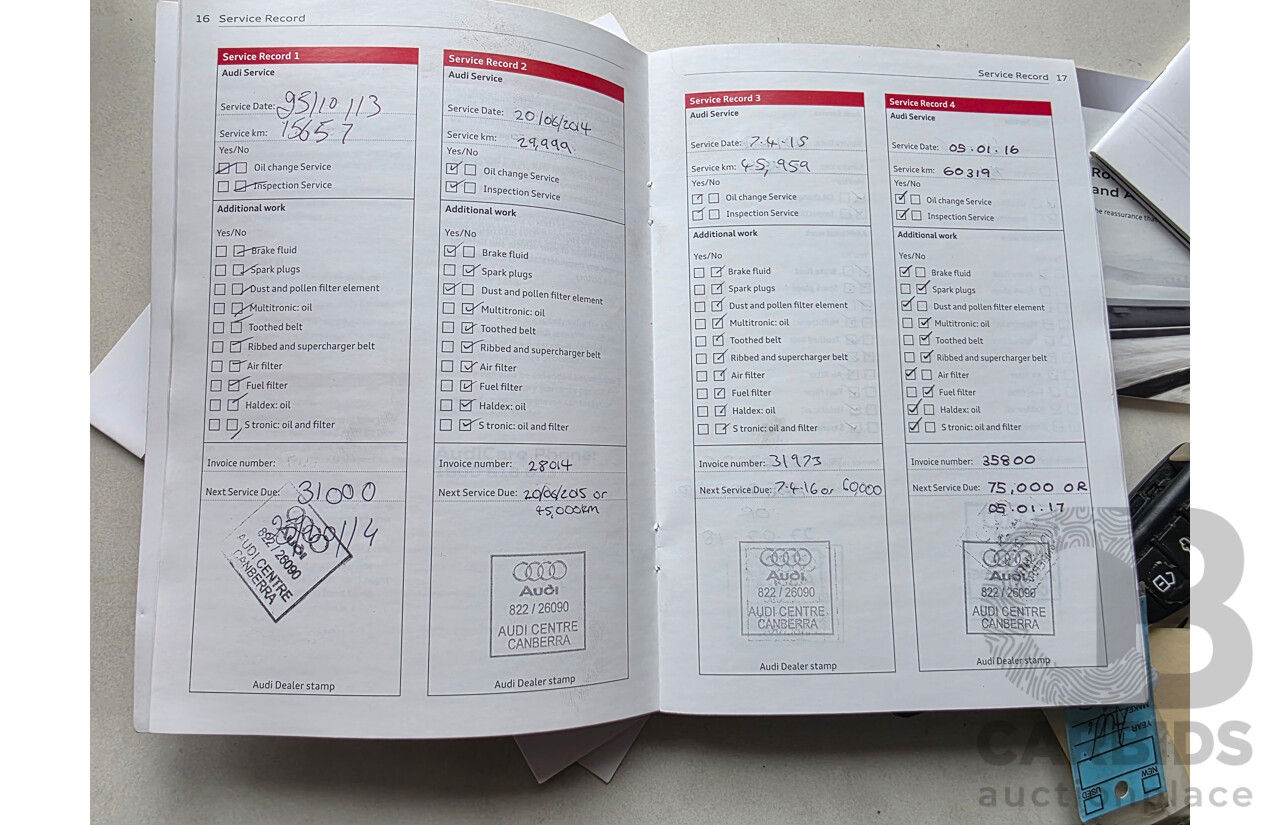 16 Service Record
Service Record 1
Audi Service
Service Date:
Service km: 15657
Yes/No
Oil change Service
Inspection Service
Additional work
Yes/No
Brake fluid
Spark plugs
Dust and pollen filter element
Multitronic: oil
Toothed belt
Ribbed and supercharger belt
Air filter
Fuel filter
Haldex: oil
S tronic: oil and filter
Invoice number:
Next Service Due: 31000
Audi
822 / 26090
AUDI CENTRE
CANBERRA
Audi Dealer stamp
Service Record 2
Audi Service
Service Date: 20/06/2014
Service km: 29,999
Yes/No
Oil change Service
Inspection Service
Additional work
Yes/No
Brake fluid
Spark plugs
Dust and pollen filter element
Multitronic: oil
Toothed belt
Ribbed and supercharger belt
Air filter
Fuel filter
Haldex: oil
S tronic: oil and filter
Invoice number: 28014
Next Service Due: 20/06/2015 or
45,000km
Audi
822 / 26090
AUDI CENTRE
CANBERRA
Audi Dealer stamp
Service Record 17
Service Record 3
Audi Service
Service Date: 7.4.15
Service km: 45,959
Yes/No
Oil change Service
Inspection Service
Additional work
Yes/No
Brake fluid
Spark plugs
Dust and pollen filter element
Multitronic: oil
Toothed belt
Ribbed and supercharger belt
Air filter
Fuel filter
Haldex: oil
S tronic: oil and filter
Invoice number: 31973
Next Service Due: 7.4.16 or 60,000
Audi
822 / 26090
AUDI CENTRE
CANBERRA
Audi Dealer stamp
Service Record 4
Audi Service
Service Date: 05.01.16
Service km: 60319
Yes/No
Oil change Service
Inspection Service
Additional work
Yes/No
Brake fluid
Spark plugs
Dust and pollen filter element
Multitronic: oil
Toothed belt
Ribbed and supercharger belt
Air filter
Fuel filter
Haldex: oil
S tronic: oil and filter
Invoice number: 35800
Next Service Due: 75,000 OR
05.01.17
Audi
822 / 26090
AUDI CENTRE
CANBERRA
Audi Dealer stamp
Ro
and A
he reassurance tha
MAKE
YEAR
NEW
USED
CARBIDS
auctionplace